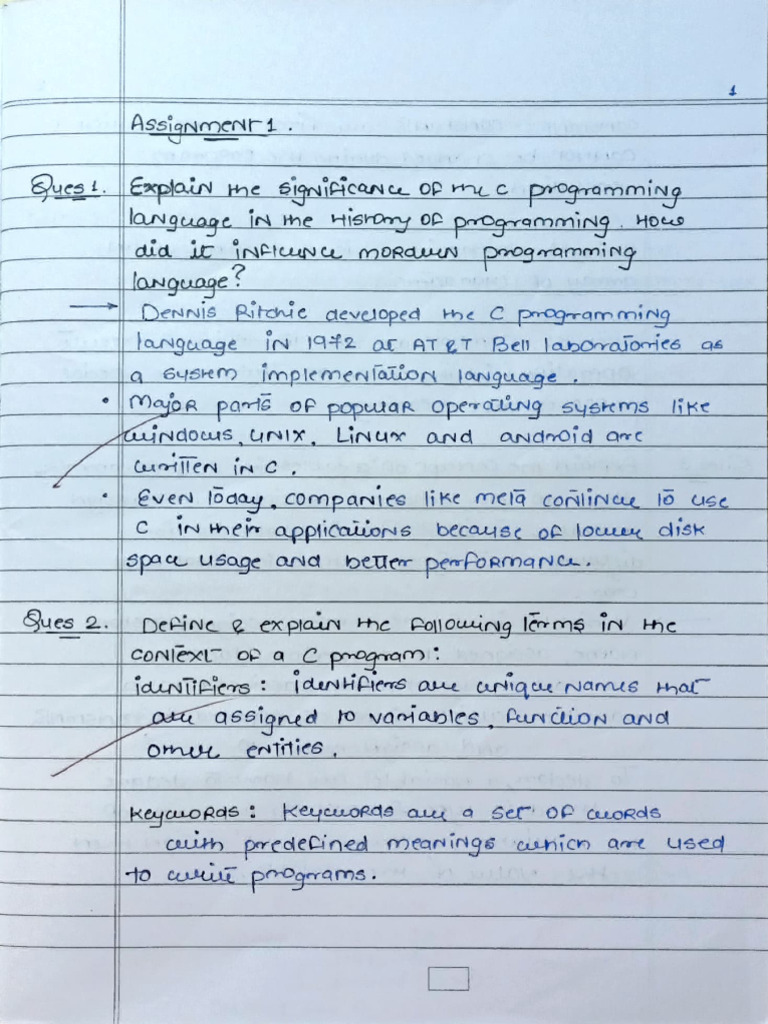 1
Assignment 1.
Ques 1. Explain the significance of the C programming
language in the History of programming. How
did it influence mordern programming
language?
→ Dennis Ritchie developed the C programming
language in 1972 at AT & T Bell laboratories as
a system implementation language.
• Major parts of popular operating systems like
windows, unix, Linux and android are
written in C.
• Even today, companies like meta continue to use
C in their applications because of lower disk
space usage and better performance.
Ques 2. Define & explain the following terms in the
context of a C program:
identifiers: identifiers are unique names that
are assigned to variables, function and
other entities.
Keywords: Keywords are a set of words
with predefined meanings which are used
to write programs.